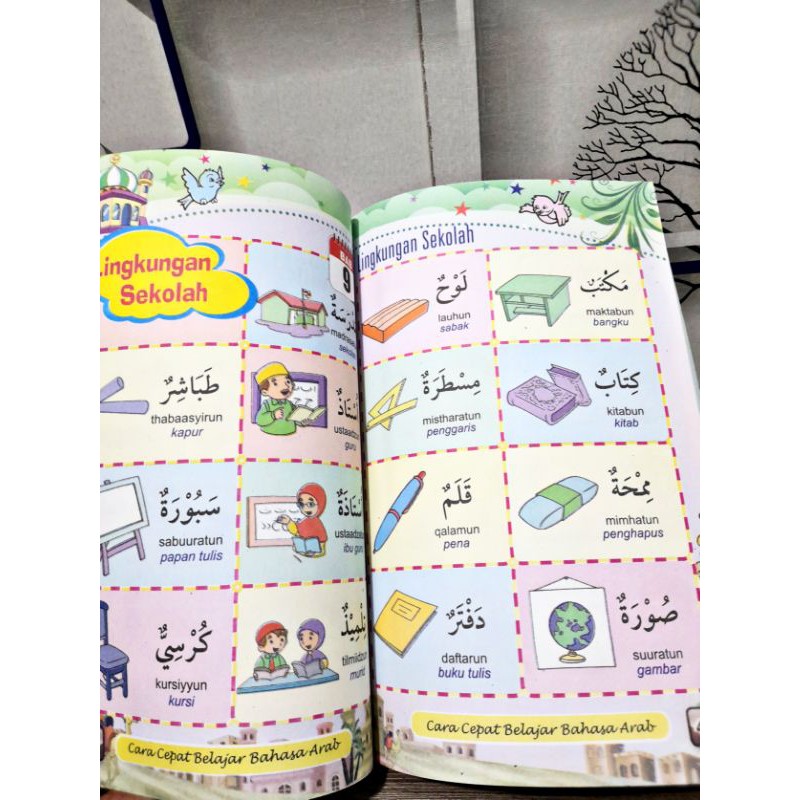 Lingkungan
Sekolah
BAB
9
طَبَاشِرٌ
thabaasyirun
kapur
أُسْتَاذٌ
ustaadz
guru
سَبُوْرَةٌ
sabuuratun
papan tulis
أُسْتَاذَةٌ
ustaadza
ibu guru
كُرْسِيٌّ
kursiyyun
kursi
تِلْمِيْذٌ
tilmiidzun
murid
Cara Cepat Belajar Bahasa Arab
Lingkungan Sekolah
لَوْحٌ
lauhun
sabak
مَكْتَبٌ
maktabun
bangku
مِسْطَرَةٌ
mistharatun
penggaris
كِتَابٌ
kitabun
kitab
قَلَمٌ
qalamun
pena
مِمْحَةٌ
mimhatun
penghapus
دَفْتَرٌ
daftarun
buku tulis
صُوْرَةٌ
suuratun
gambar
Cara Cepat Belajar Bahasa Arab